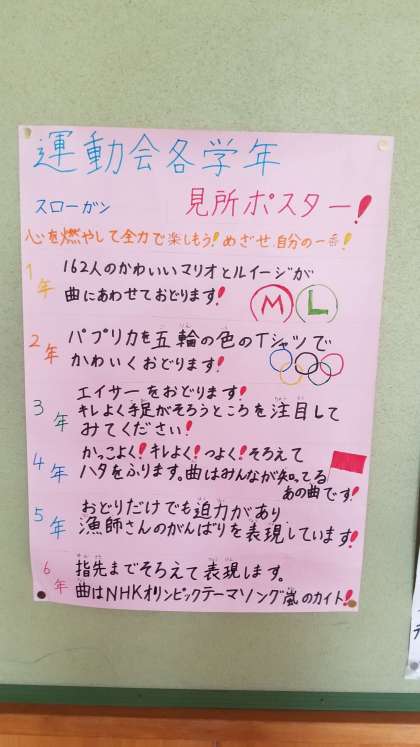 運動会各学年
見所ポスター!
スローガン
心を燃やして全力で楽しもう!めざせ自分の一番!
1年
162人のかわいいマリオとルイージが
曲にあわせておどります!
M L
2年
パプリカを五輪の色のTシャツで
かわいくおどります!
3年
エイサーをおどります!
キレよく手足がそろうところを注目して
みてください!
4年
かっこよく!キレよく!つよく!そろえて
ハタをふります。曲はみんなが知ってる
あの曲です!
5年
おどりだけでも迫力があり
漁師さんのがんばりを表現しています!
6年
指先までそろえて表現します。
曲はNHKオリンピックテーマソング嵐のカイト!